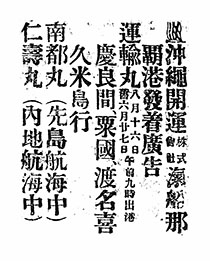 沖繩開運株式會社滊船那
覇港發着廣告
運輸丸 八月十六日 舊六月廿七日 午前九時出港
慶良間、粟國、渡名喜
久米島行
南都丸(先島航海中)
仁壽丸(内地航海中)